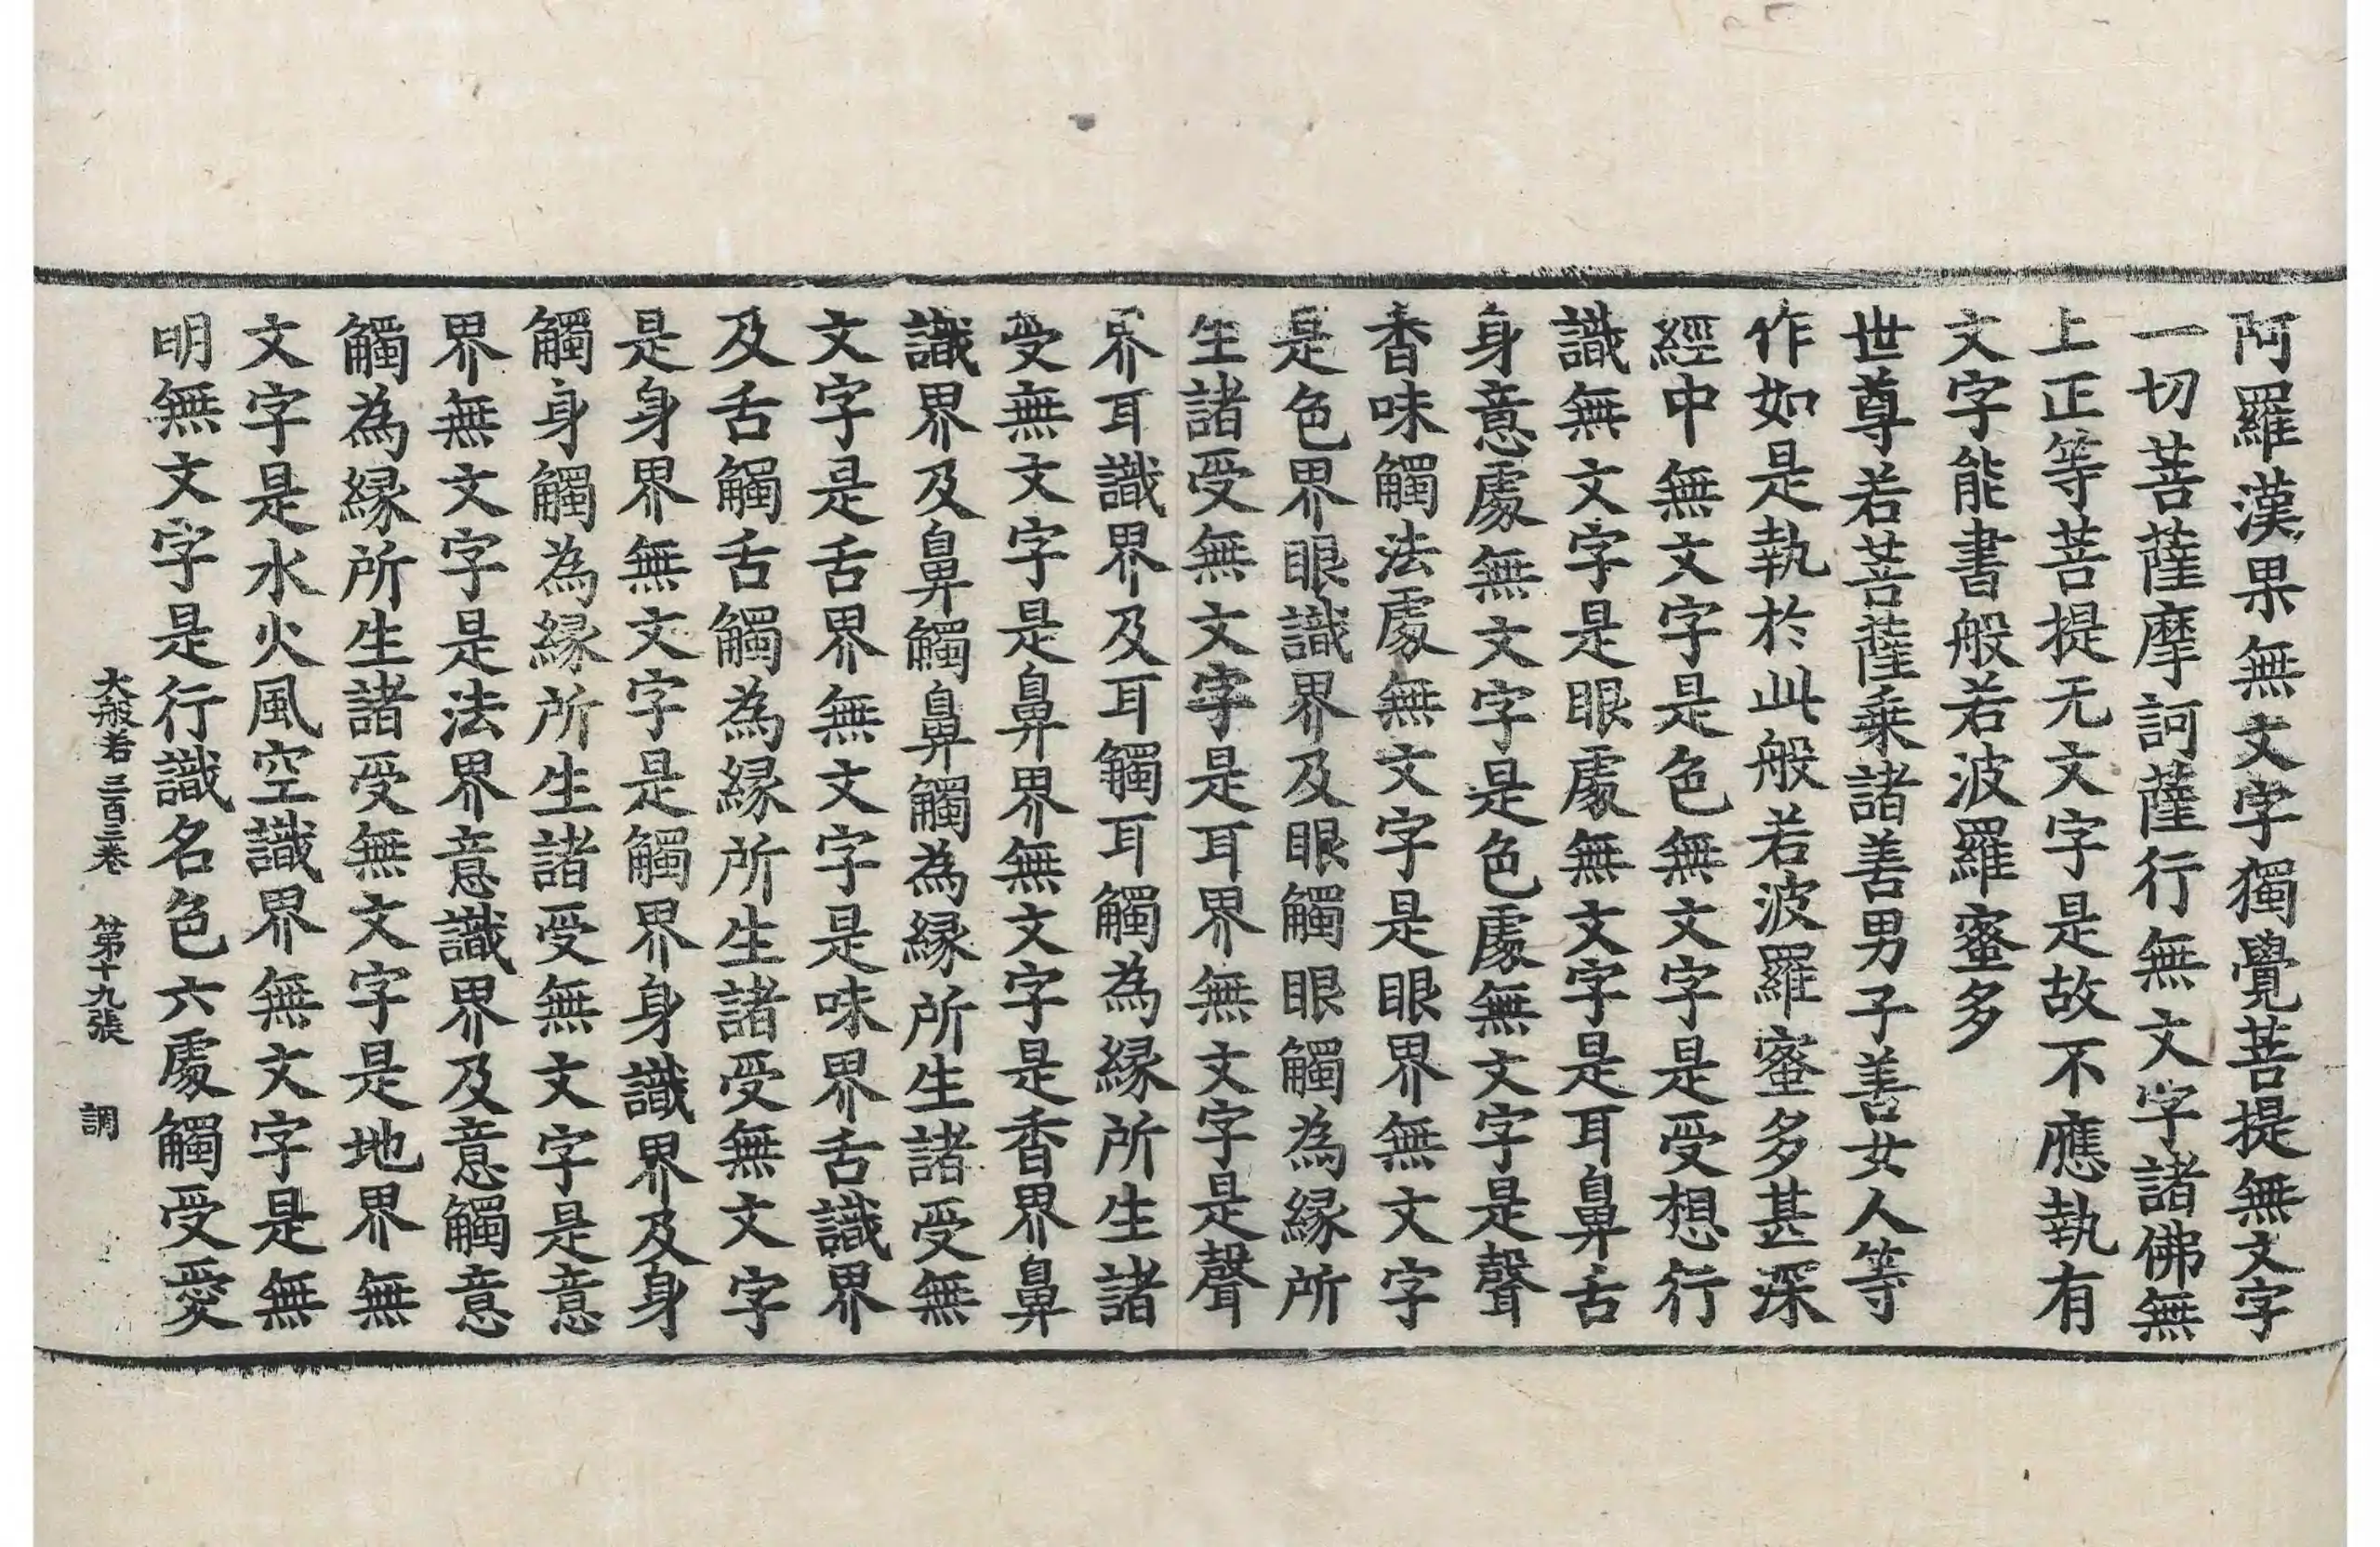 阿羅漢果無文字獨覺菩提無文字
一切菩薩摩訶薩行無文字諸佛無
上正等菩提无文字是故不應執有
文字能書般若波羅蜜多
世尊若菩薩乗諸善男子善女人等
作如是執於此般若波羅蜜多甚深
經中無文字是色無文字是受想行
識無文字是眼處無文字是耳鼻舌
身意處無文字是色處無文字是聲
香味觸法處無文字是眼界無文字
是色界眼識界及眼觸眼觸為緣所
生諸受無文字是耳界無文字是聲
界耳識界及耳觸耳觸為緣所生諸
受無文字是鼻界無文字是香界鼻
識界及鼻觸鼻觸為緣所生諸受無
文字是舌界無文字是味界舌識界
及舌觸舌觸為緣所生諸受無文字
是身界無文字是觸界身識界及身
觸身觸為緣所生諸受無文字是意
界無文字是法界意識界及意觸意
觸為緣所生諸受無文字是地界無
文字是水火風空識界無文字是無
明無文字是行識名色六處觸受愛
大般若三百三卷 第十九張 調